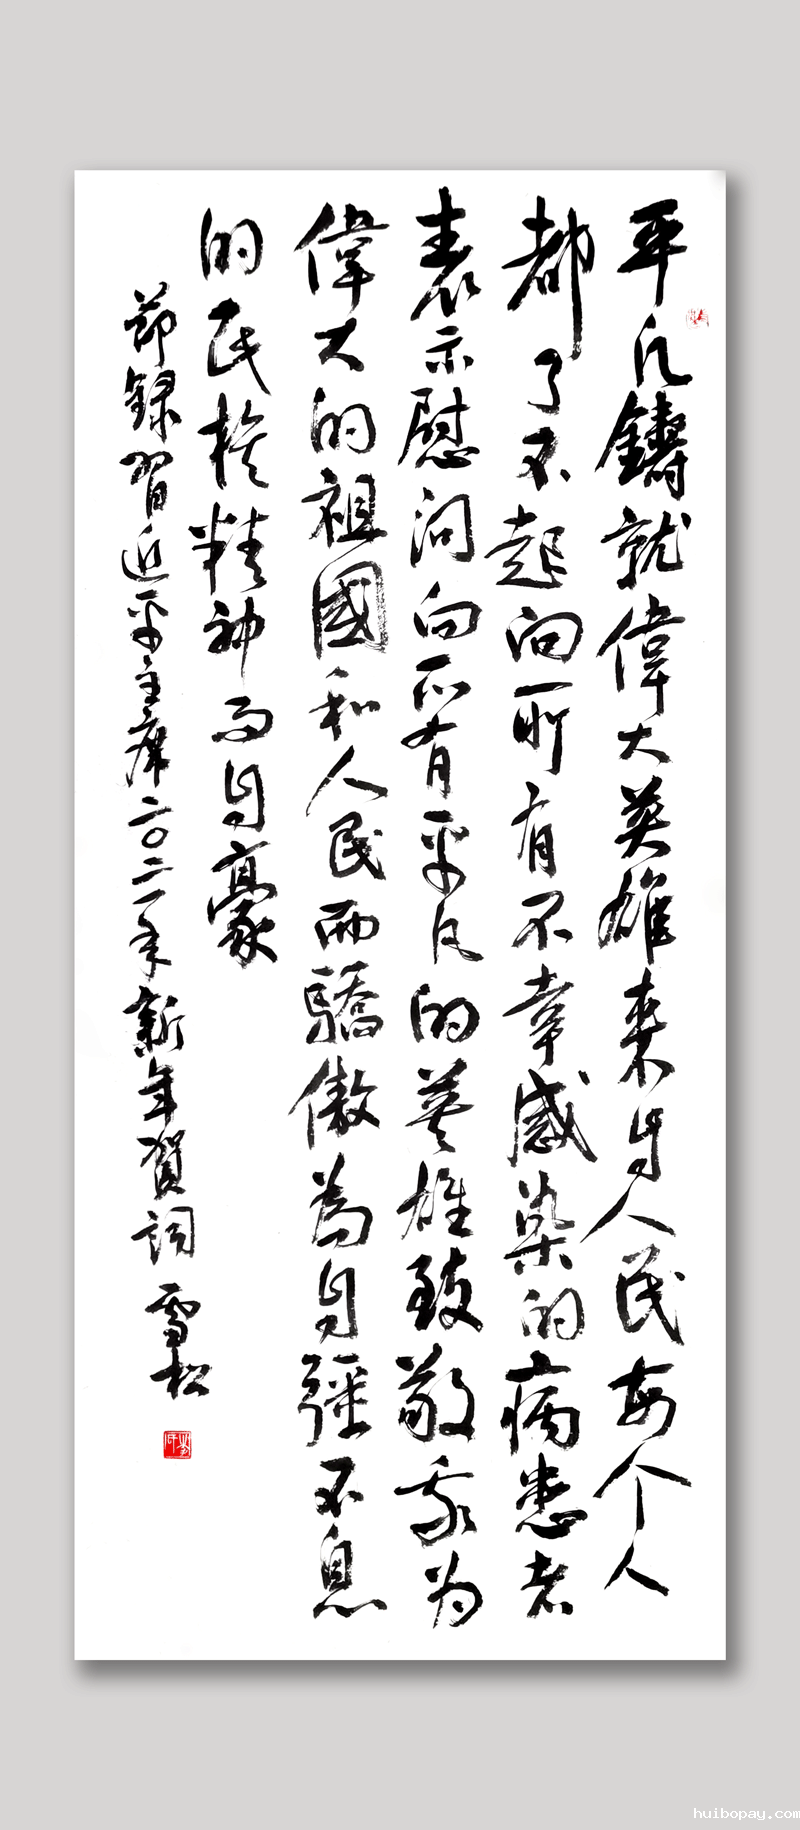 平凡鑄就偉大英雄来自人民每个人
都了不起向所有不幸感染的病患者
表示慰问向所有平凡的英雄致敬我为
偉大的祖國和人民而驕傲為自强不息
的民族精神而自豪
節録習近平主席二〇二一年新年賀詞 雪松
huibopay.com